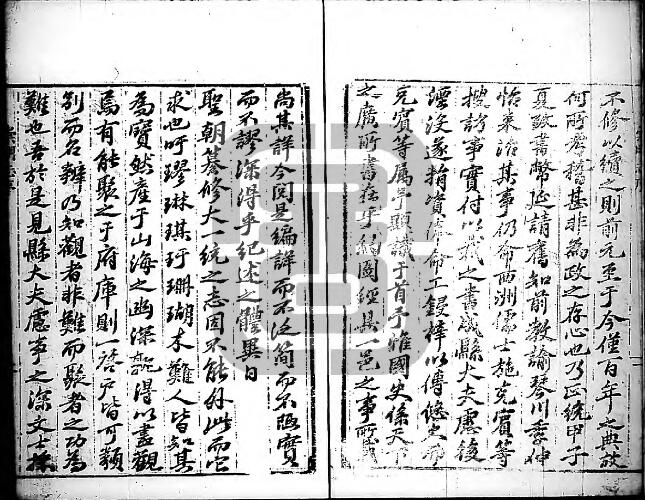 不修以續之則前元至于今僅百年之典故
何所考稽甚非為政之存心也乃正統甲子
夏政書幣延請舊知前教諭琴川季仲
怡來涖其事仍命西洲儒士施克賓等
搜訪事實付以裁之書成縣大夫慮後
湮沒遂捐資俸命工鋟梓以傳悠久
克賓等属予題識于首予惟國史係天下
之廣所書在乎綱圖經具一邑之事所
尚其詳今閱是編詳而不泛簡而不陋實
而不謬深得乎紀述之體異日
聖朝纂修大一統之志固不能外此而它
求也吁璆琳琪玗珊瑚木難人皆知其
為寶然產于山海之幽深孰得以盡觀
焉有能聚之于府庫則一啓戶皆可類
別而名辨乃知觀者非難而聚者之功為
難也吾於是見縣大夫慮事之深文士採